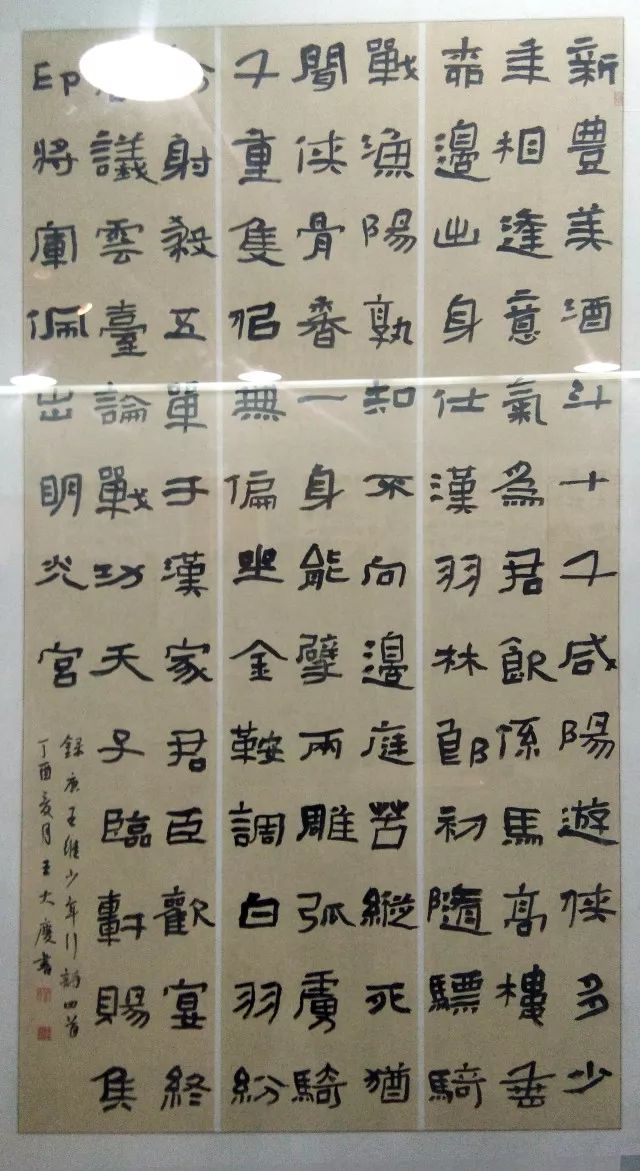 新豐美酒斗十千咸陽遊俠多少
年相逢意氣為君飲係馬高樓垂
桺邊出身仕漢羽林郎初隨驃騎
戰漁陽孰知不向邊庭苦縱死猶
聞俠骨香一身能擘兩雕弧虜騎
千重隻佀無偏坐金鞍調白羽紛
射殺五單于漢家君臣歡宴終
議雲臺論戰功天子臨軒賜矦
印將軍佩出明光宮
錄唐王維少年行詩四首
丁酉夏月王大慶書